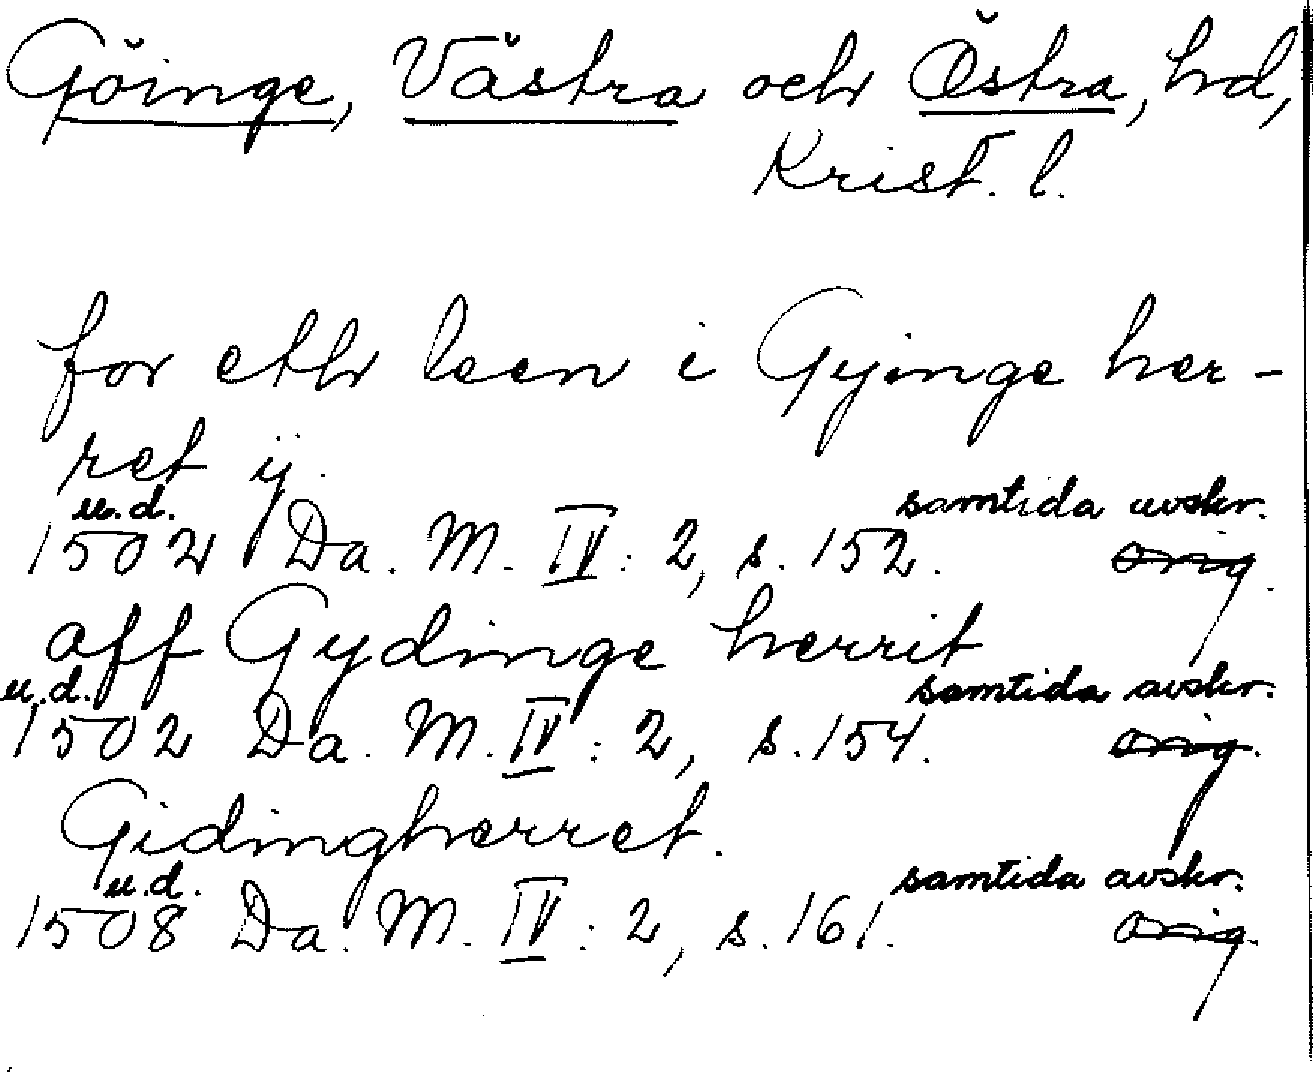 Göinge, Västra och Östra, hd,
Krist. l.
for eth leen i Gyinge her-
ret ij.
u.d. samtida avskr.
1502 Da. M. IV: 2, s. 152. orig.
aff Gydinge herrit
u.d. samtida avskr.
1502 Da. M. IV: 2, s. 154. orig.
Gidingherret.
u.d. samtida avskr.
1508 Da. M. IV: 2, s. 161. orig.